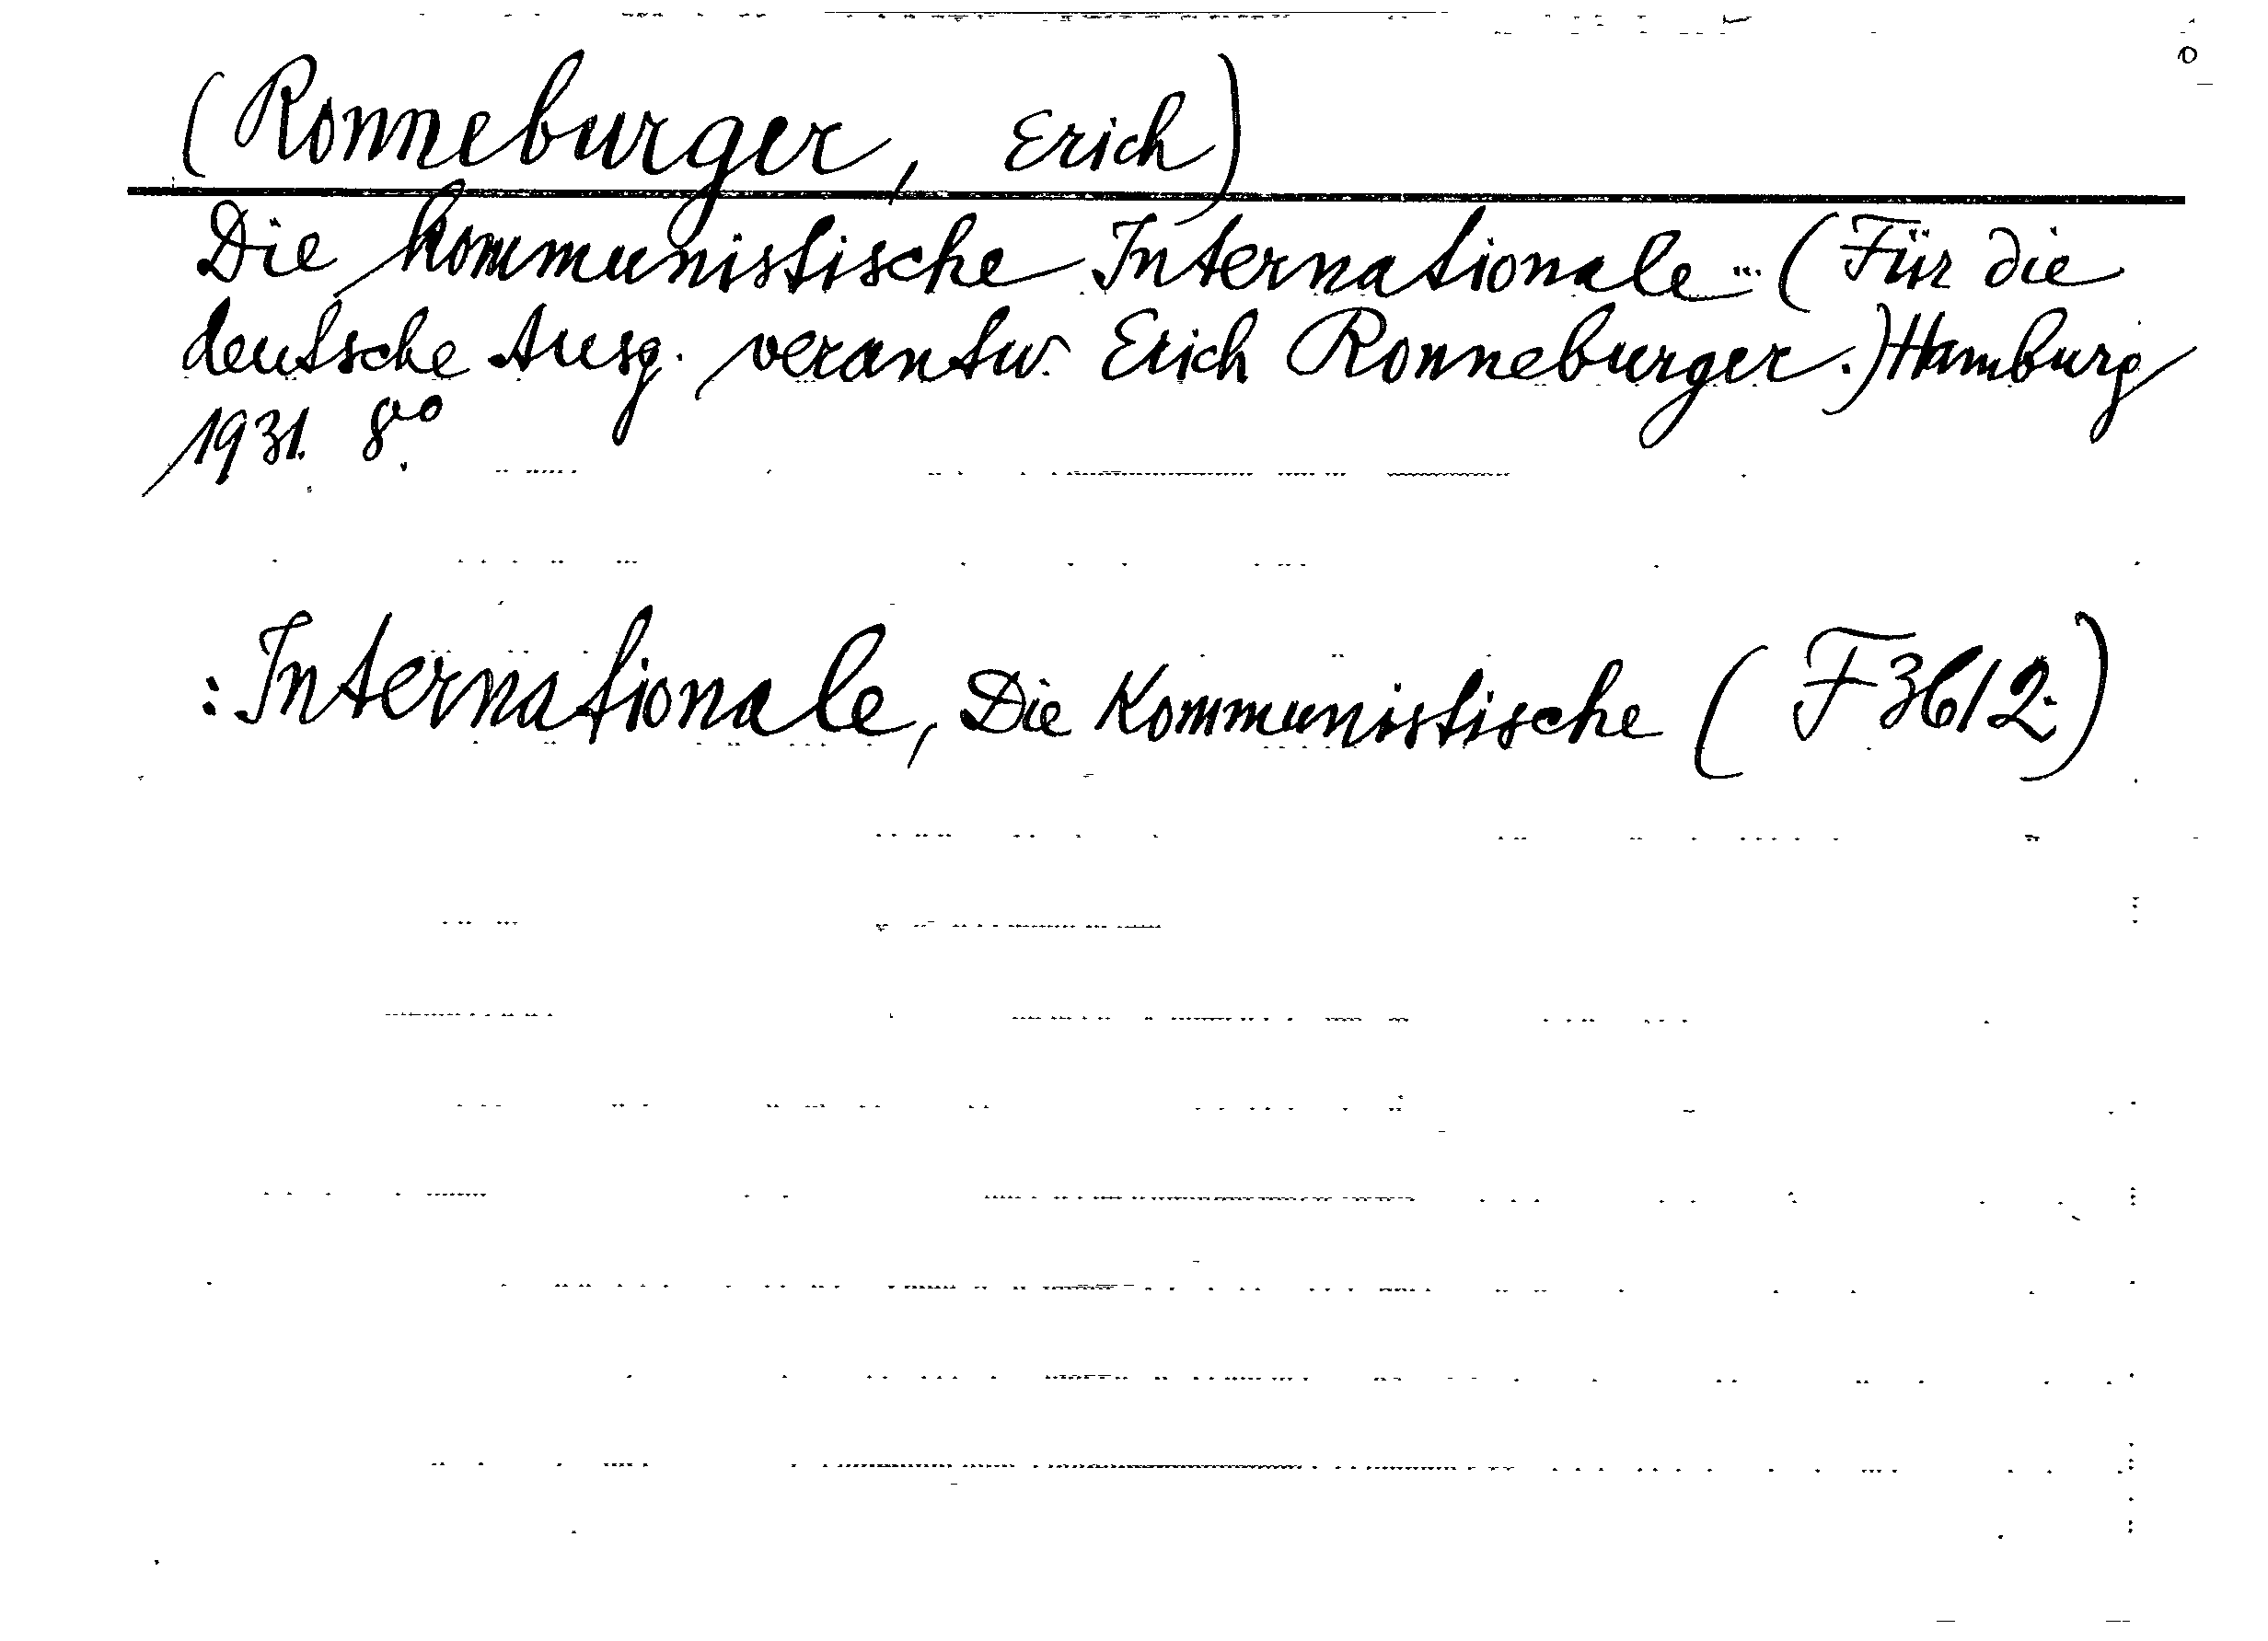 (Ronneburger, Erich)
Die kommunistische Internationale ... (Für die
deutsche Ausg. verantw. Erich Ronneburger.) Hamburg
1931. 8°.
: Internationale, Die Kommunistische (F 36/2.)